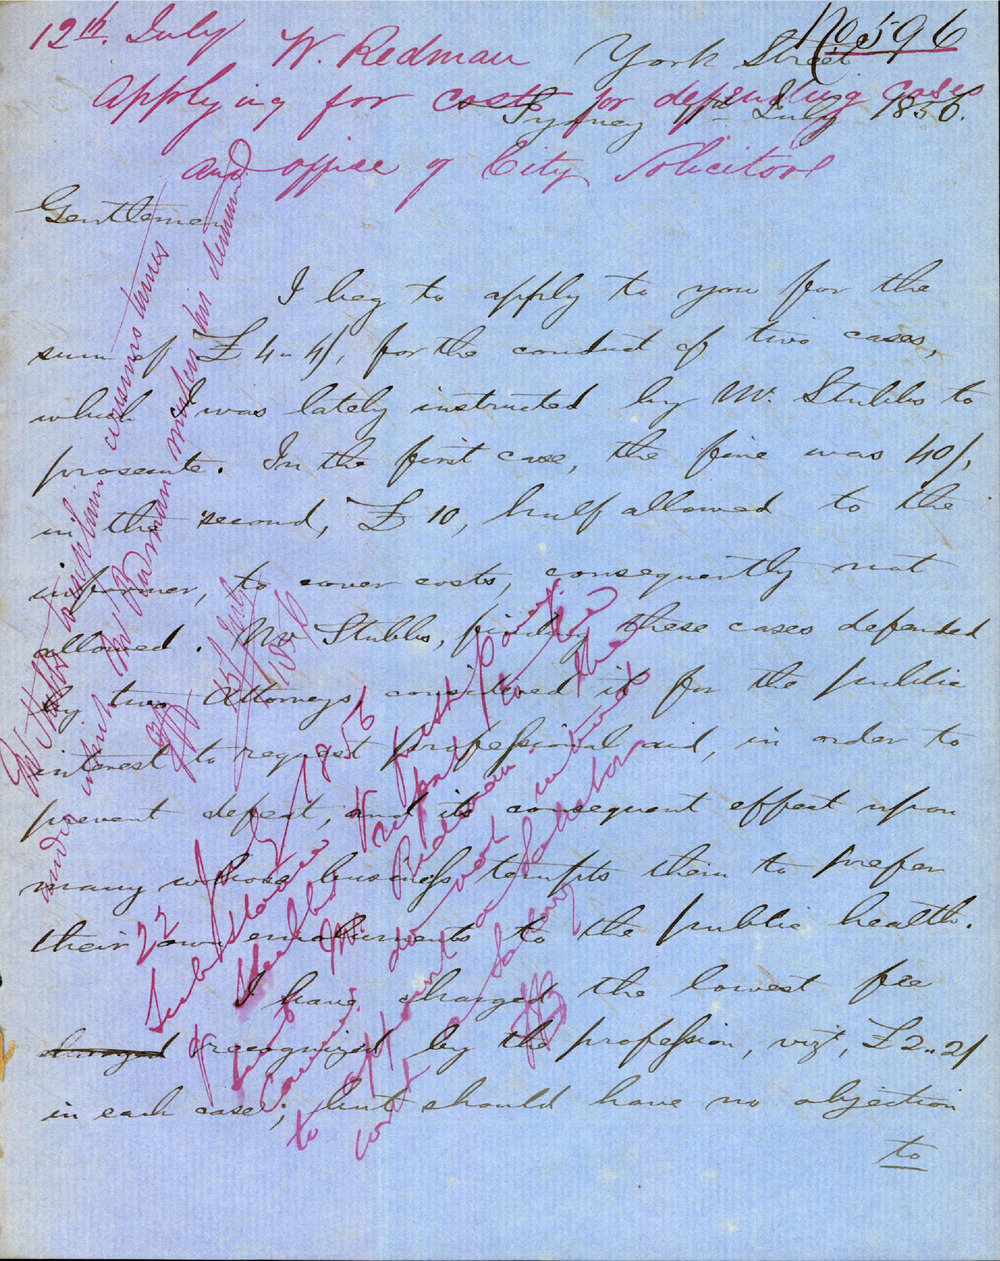 No. 596
12th. July W. Redman
Applying for costs for defending cases
and office of City Solicitor
York Street
Sydney 11th July 1856.
Gentlemen
I beg to apply to you for the
sum of £4 " 4/, for the conduct of two cases,
which I was lately instructed by Mr. Stubbs to
prosecute. In the first case, the fine was 40/,
in the second, £10, half allowed to the
informer, to cover costs, consequently not
allowed. Mr Stubbs, finding these cases defended
by two Attorneys considered it for the public
interest to request professional aid, in order to
prevent defeat, and its consequent effect upon
many whose business tempts them to prefer
their own emoluments to the public health.
I have charged the lowest fee
charged recognized by the profession, vizt, £2 " 2/
in each case; but should have no objection
to
Mr Stubbs to explain
under what Mr Redman makes his demand
15/ July
1856
22 July / 1856
Substance of
Stubbs report
Mr. Redman to the
do not
appointment a Solicitor